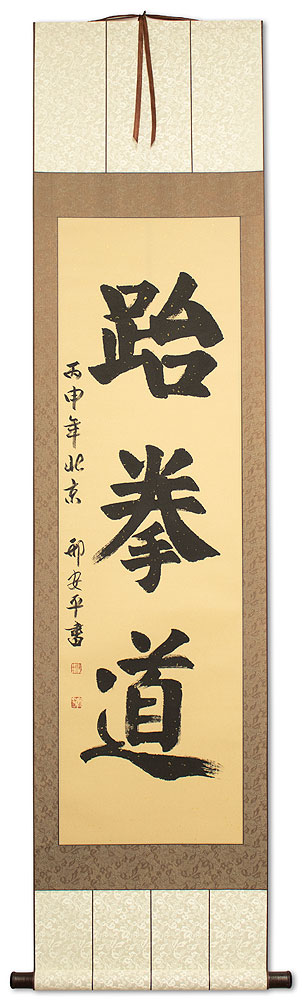 跆拳道
丙申年北京 邢安平書